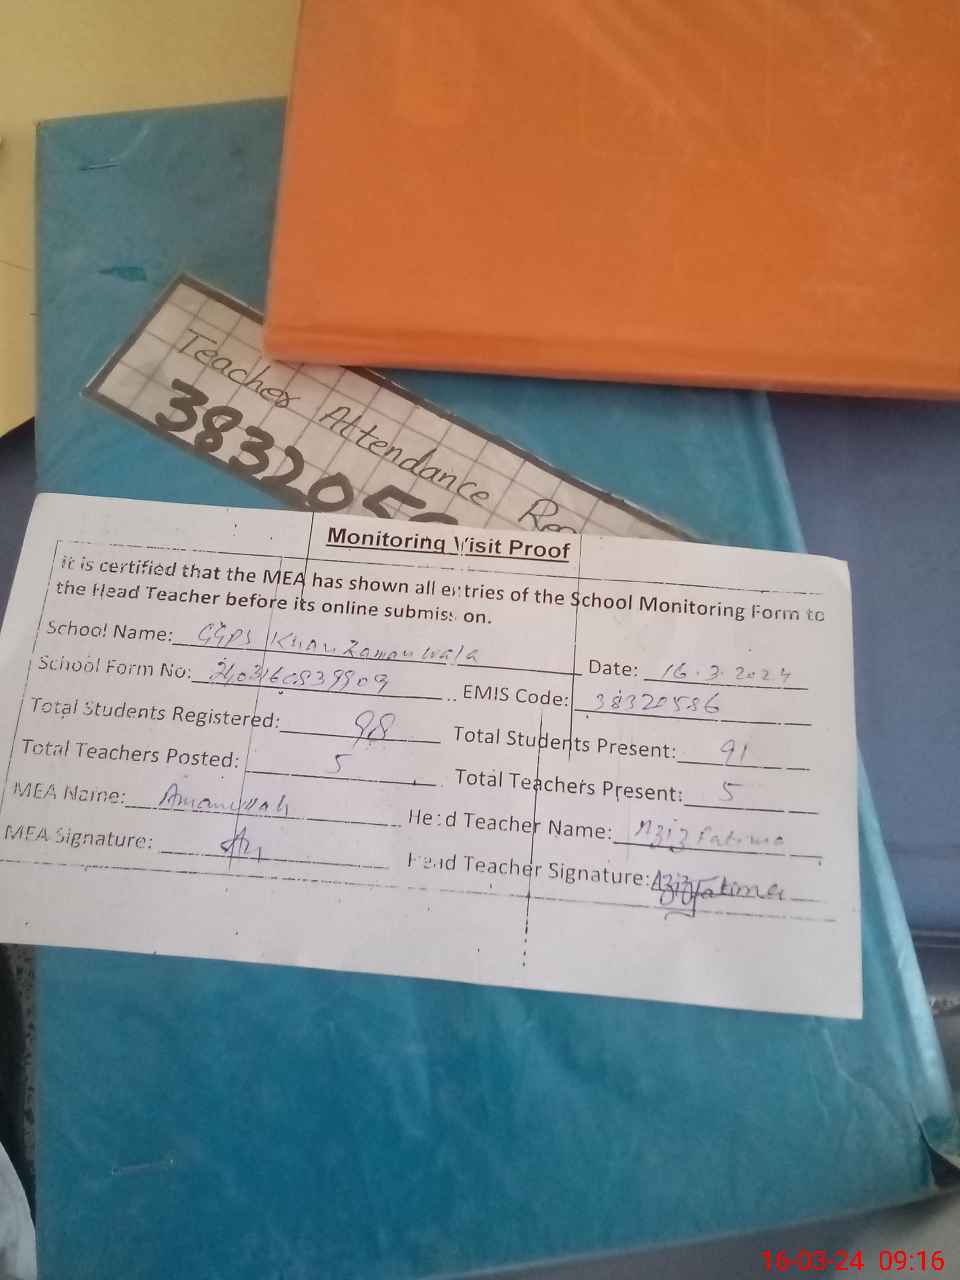 Teacher Attendance Reg
3832058
Monitoring Visit Proof
It is certified that the MEA has shown all entries of the School Monitoring Form to
the Head Teacher before its online submission.
School Name: GGPS Khan Zaman Wala Date: 16.3.2024
School Form No: EMIS Code: 38320586
Total Students Registered: 98 Total Students Present: 91
Total Teachers Posted: 5 Total Teachers Present: 5
MEA Name: Amanullah Head Teacher Name: Aziz Fatima
MEA Signature: Head Teacher Signature: Aziz Fatima
16-03-24 09:16